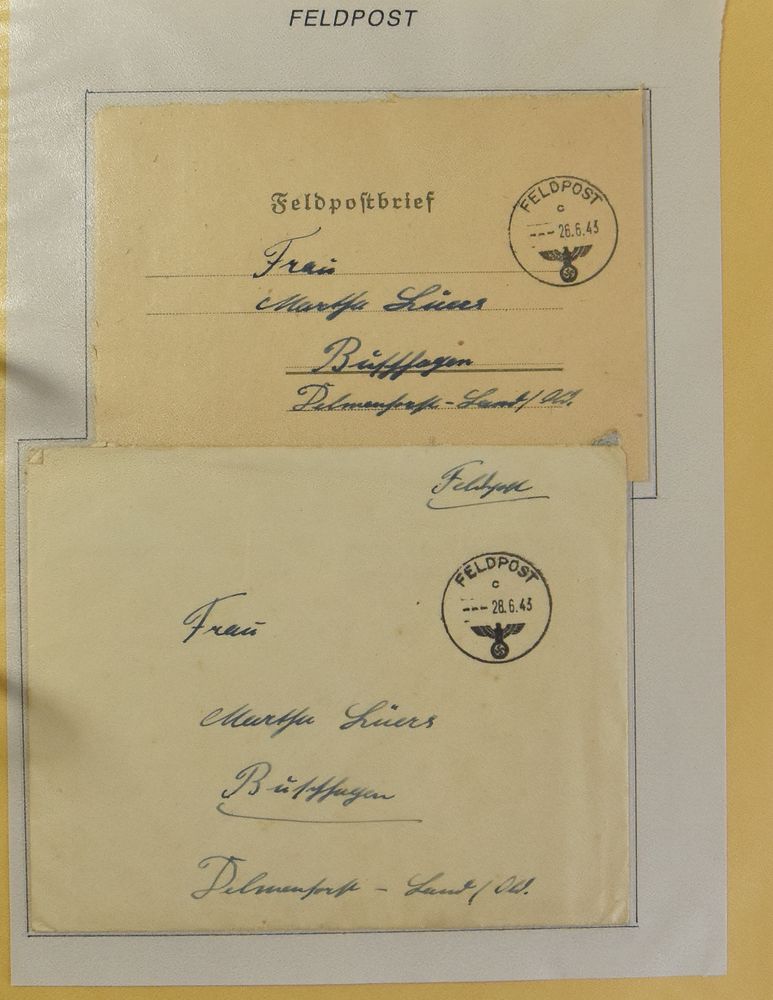 FELDPOST
Feldpostbrief
FELDPOST
c
--- 26.6.43
Frau
Martha Lüers
Buschhagen
Delmenhorst - Land / Old.
Feldpost
FELDPOST
c
--- 28.6.43
Frau
Martha Lüers
Buschhagen
Delmenhorst - Land / Old.